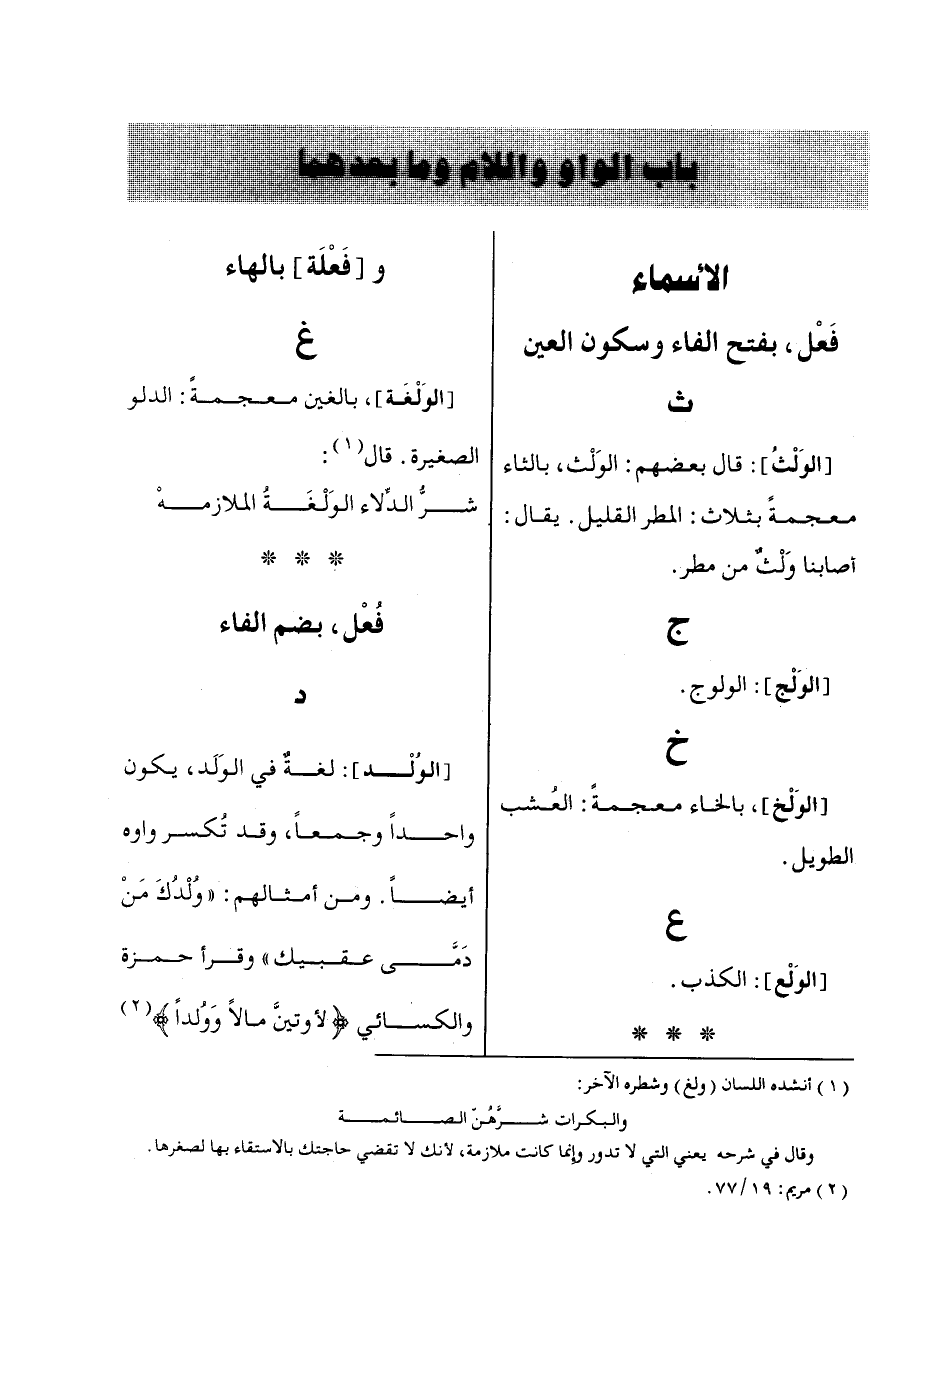 باب الواو واللام وما بعدهما
الأسماء
فَعْل، بفتح الفاء وسكون العين
ث
[الوَلْثُ]: قال بعضهم: الوَلْث، بالثاء
معجمةً بثلاث: المطر القليل. يقال:
أصابنا وَلْثٌ من مطر.
ج
[الوَلْج]: الولوج.
خ
[الوَلْخ]، بالخاء معجمةً: العُشب
الطويل.
ع
[الوَلْع]: الكذب.
* * *
و [فَعْلَة] بالهاء
غ
[الوَلْغَة]، بالغين معجمةً: الدلو
الصغيرة. قال(١):
شرُّ الدِّلاء الوَلْغَةُ الملازمهْ
* * *
فُعْل، بضم الفاء
د
[الوُلْد]: لغةٌ في الوَلَد، يكون
واحداً وجمعاً، وقد تُكسر واوه
أيضاً. ومن أمثالهم: «وُلْدُكَ مَنْ
دَمَّى عقبيك» وقرأ حمزة
والكسائي ﴿لأوتينَّ مالاً وَوُلداً﴾(٢)
(١) أنشده اللسان (ولغ) وشطره الآخر:
والبكرات شرَّهُنّ الصائمة
وقال في شرحه يعني التي لا تدور وإنما كانت ملازمة، لأنك لا تقضي حاجتك بالاستقاء بها لصغرها.
(٢) مريم: ١٩/ ٧٧.